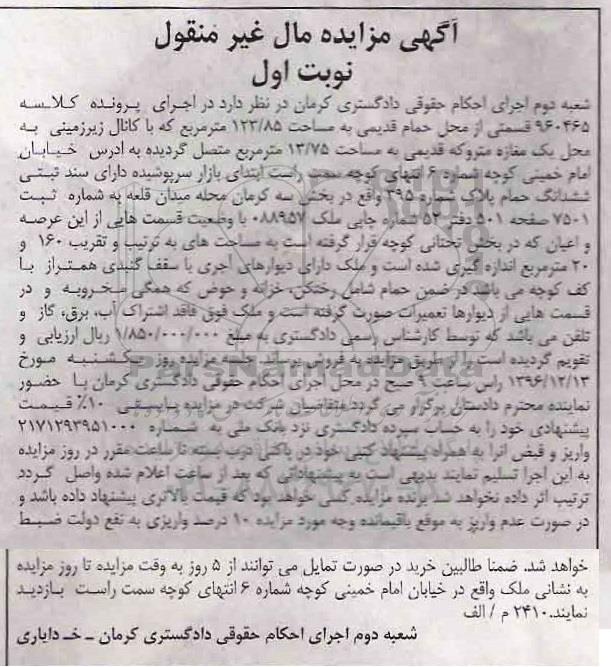 آگهی مزایده مال غیر منقول
نوبت اول
شعبه دوم اجرای احکام حقوقی دادگستری کرمان در نظر دارد در اجرای پرونده کلاسه
۹۶۰۴۶۵ قسمتی از محل حمام قدیمی به مساحت ۱۲۳/۸۵ مترمربع که با کانال زیرزمینی به
محل یک مغازه متروکه قدیمی به مساحت ۱۳/۷۵ مترمربع متصل گردیده به ادرس خیابان
امام خمینی کوچه شماره ۶ انتهای کوچه سمت راست ابتدای بازار سرپوشیده دارای سند ثبتی
ششدانگ حمام پلاک شماره ۳۹۵ واقع در بخش سه کرمان محله میدان قلعه به شماره ثبت
۷۵۰۱ صفحه ۵۰۱ دفتر ۵۲ شماره چاپی ملک ۰۸۸۹۵۷ با وضعیت قسمت هایی از این عرصه
و اعیان که در بخش تحتانی کوچه قرار گرفته است به مساحت های به ترتیب و تقریب ۱۶۰ و
۲۰ مترمربع اندازه گیری شده است و ملک دارای دیوارهای آجری با سقف گنبدی همتراز با
کف کوچه می باشد در ضمن حمام شامل رختکن، خزانه و حوض که همگی مخروبه و در
قسمت هایی از دیوارها تعمیرات صورت گرفته است و ملک فوق فاقد اشتراک آب، برق، گاز و
تلفن می باشد که توسط کارشناس رسمی دادگستری به مبلغ ۱/۸۵۰/۰۰۰/۰۰۰ ریال ارزیابی و
تقویم گردیده است را از طریق مزایده به فروش برساند جلسه مزایده روز یکشنبه مورخ
۱۳۹۶/۱۲/۱۳ راس ساعت ۹ صبح در محل اجرای احکام حقوقی دادگستری کرمان با حضور
نماینده محترم دادستان برگزار می گردد متقاضیان شرکت در مزایده بایستی ۱۰٪ قیمت
پیشنهادی خود را به حساب سپرده دادگستری نزد بانک ملی به شماره ۲۱۷۱۲۹۳۹۵۱۰۰۰
واریز و قبض آنرا به همراه پیشنهاد کتبی خود در پاکتی درب بسته تا ساعت مقرر در روز مزایده
به این اجرا تسلیم نمایند بدیهی است به پیشنهاداتی که بعد از ساعت اعلام شده واصل گردد
ترتیب اثر داده نخواهد شد برنده مزایده کسی خواهد بود که قیمت بالاتری پیشنهاد داده باشد و
در صورت عدم واریز به موقع باقیمانده وجه مورد مزایده ۱۰ درصد واریزی به نفع دولت ضبط
خواهد شد. ضمنا طالبین خرید در صورت تمایل می توانند از ۵ روز به وقت مزایده تا روز مزایده
به نشانی ملک واقع در خیابان امام خمینی کوچه شماره ۶ انتهای کوچه سمت راست بازدید
نمایند.۲۴۱۰ م / الف
شعبه دوم اجرای احکام حقوقی دادگستری کرمان ـ خـ دایاری
ParsNamaddata